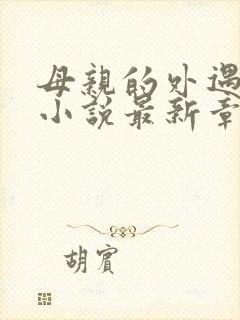 母親的外遇
小說最新章
胡賓